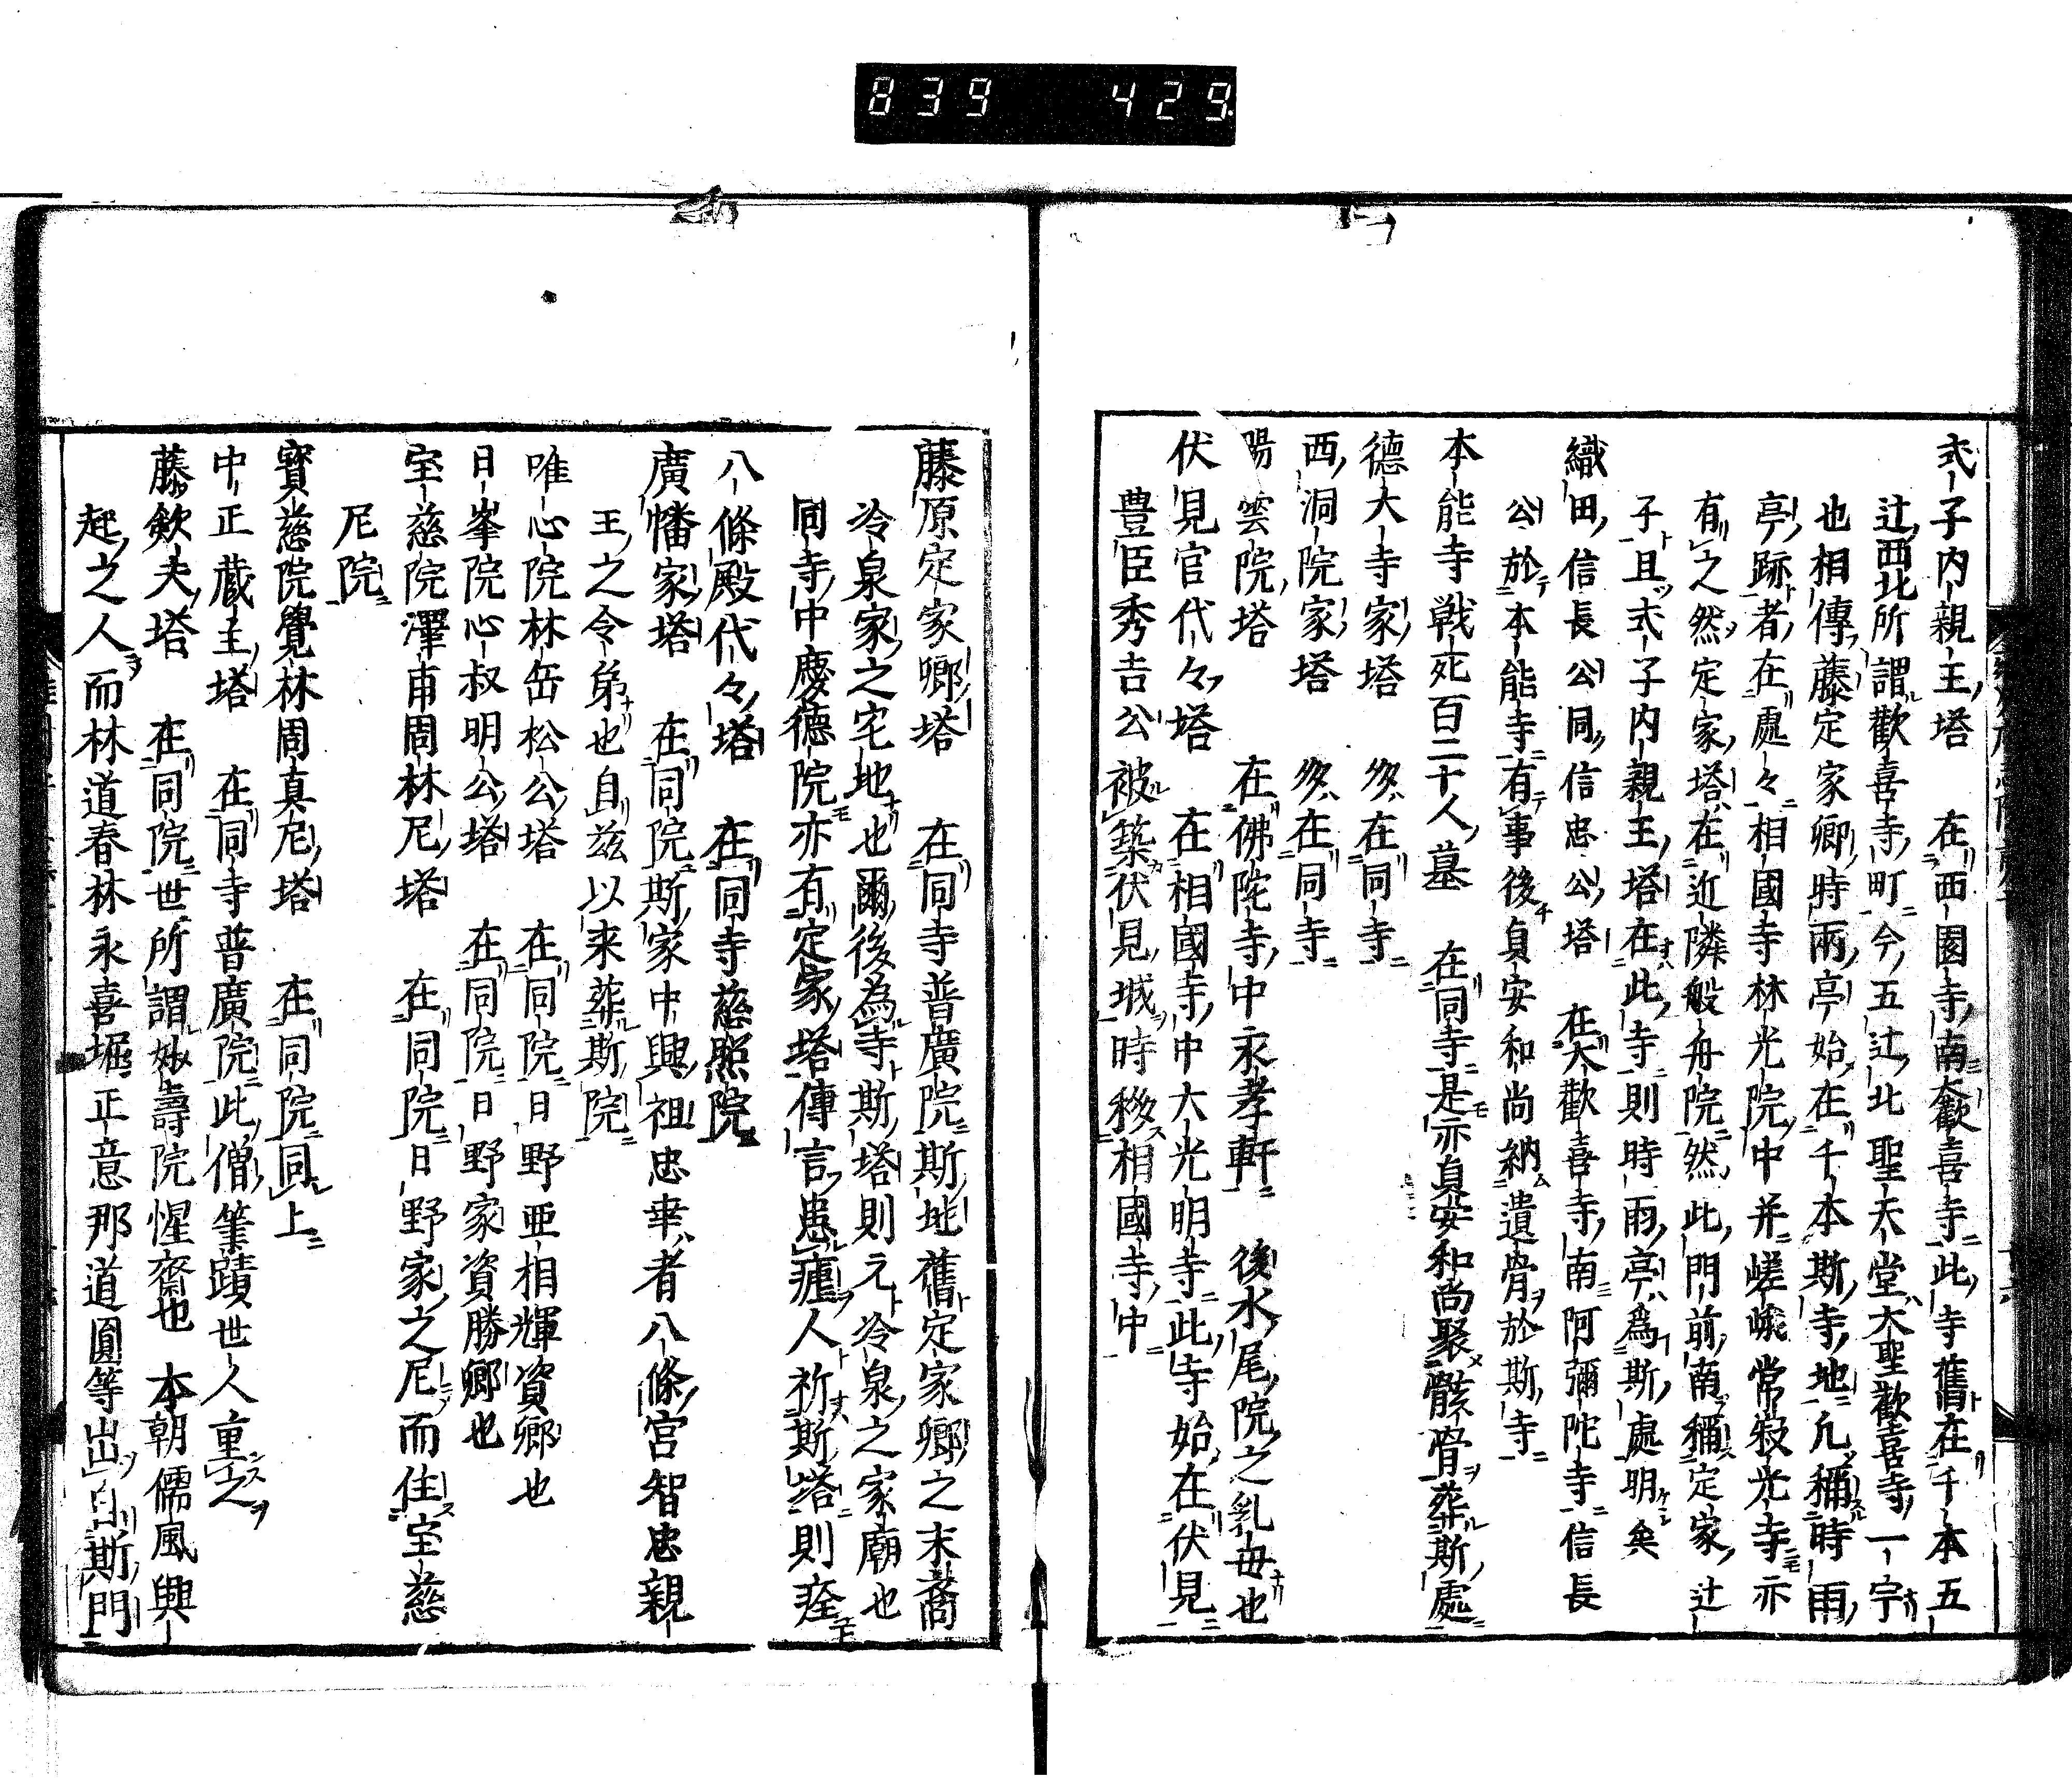 839 429
式子内親王塔 在西園寺南大歡喜寺此寺舊在千本五
辻西北所謂歡喜寺町今五辻北聖天堂大聖歡喜寺一宇
也相傳藤定家卿時雨亭始在千本斯寺地凢稱時雨
亭跡者在處々相國寺林光院中并嵯峨常寂光寺亦
有之然定家塔在近隣般舟院然此門前南稱定家辻
子且式子内親王塔在此寺則時雨亭爲斯處明矣
織田信長公同信忠公塔 在大歡喜寺南阿彌陀寺信長
公於本能寺有事後貞安和尚納遺骨於斯寺
本能寺戦死百二十人墓 在同寺是亦貞安和尚聚骸骨葬斯處
德大寺家塔 在同寺
西洞院家塔 在同寺
陽雲院塔 在佛陀寺中永孝軒 後水尾院之乳母也
伏見官代々塔 在相國寺中大光明寺此寺始在伏見
豊臣秀吉公被築伏見城時移相國寺中
藤原定家卿塔 在同寺普廣院斯地舊定家卿之末裔
冷泉家之宅地也爾後為寺斯塔則元冷泉之家廟也
同寺中慶德院亦有定家塔傳言患瘧人祈斯塔則痊
八條殿代々塔 在同寺慈照院
廣幡家塔 在同院斯家中興祖忠幸者八條宮智忠親
王之令弟也自茲以来葬斯院
唯心院林岳松公塔 在同院日野亜相輝資卿也
日峯院心叔明公塔 在同院日野家資勝卿也
宝慈院澤甫周林尼塔 在同院日野家之尼而住宝慈
尼院
寳慈院覺林周真尼塔 在同院同上
中正蔵主塔 在同寺普廣院此僧筆蹟世人重之
藤歛夫塔 在同院世所謂妙壽院惺齋也 本朝儒風興
起之人而林道春林永喜堀正意那道圓等出自斯門